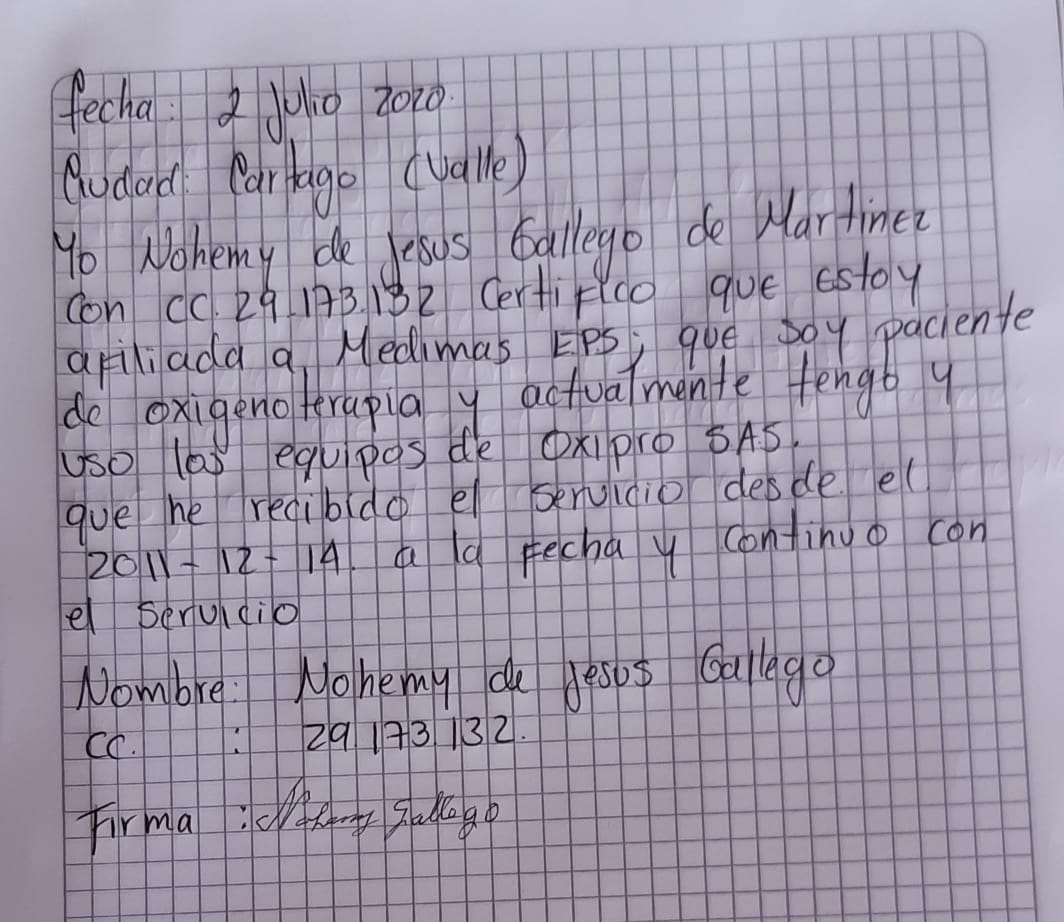 fecha: 2 Julio 2020.
Ciudad: Cartago (Valle)
Yo Nohemy de Jesus Gallego de Martinez
con cc. 29.173.132 Certifico que estoy
afiliada a Medimas EPS; que soy paciente
de oxigenoterapia y actualmente tengo y
uso los equipos de Oxipro S.A.S.
que he recibido el servicio desde el
2011-12-14. a la fecha y continuo con
el servicio
Nombre: Nohemy de Jesus Gallego
CC. : 29.173.132.
Firma : Nohemy Gallego